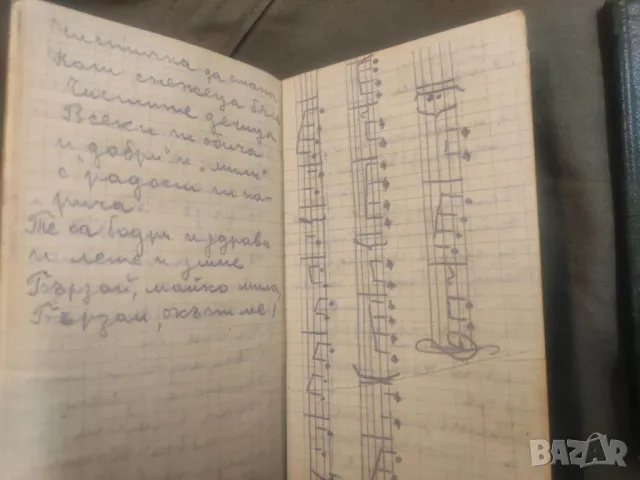 Чистичка да стана
Като снежеца бял
Чистите дечица
Всеки ги обича
и „добри“ и „мили“
с радост ги на-
рича.
Те са бодри и здрави
и лете и зиме!
Бързай, майко мила,
Бързай, окъпи ме!
BAZAR
bg